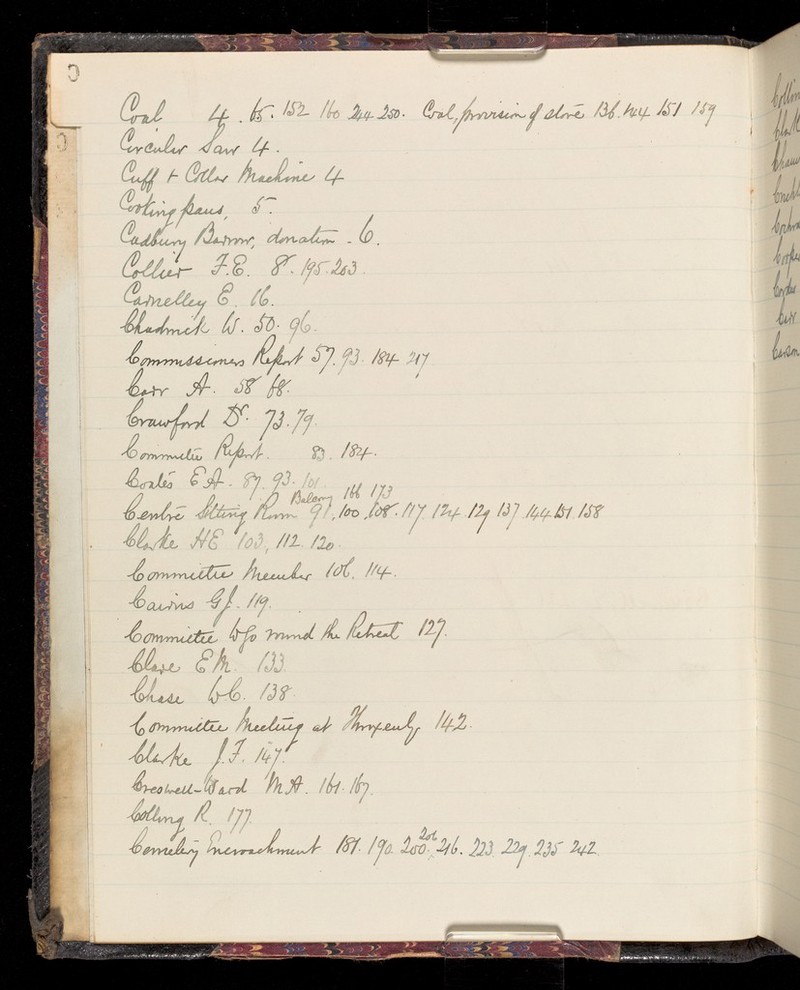 C
Coal 4. 65. 152 160 244 250. Coal, provision of store 136. 144 151 159
Circular Saw 4.
Cuff & Collar Machine 4
Cooking pans, 5.
Cadbury Barrow, donation - 6.
Collier F.E. 8. 195. 203.
Carnelley E. 16.
Chadwick W. 50. 96.
Commissioners Report 57. 93. 184 217
Carr A. 58 68.
Crawford Dr. 73. 79.
Committee Report. 83. 184.
Coates E A. 87. 93. 101
Balcony 166 173
Centre Sitting Room 91, 100 108. 117 124 129 137 144 151 158
Clarke HE 103, 112. 120.
Committee Member 106. 114.
Cairns G J. 119.
Committee to go round the Retreat 127.
Clare E M. 133
Chase W C. 138.
Committee Meeting at 142.
Clarke J. F. 147.
Creswell-Ward M A. 161. 167.
Colling R. 177.
206
Cemetery Encroachment 181. 190. 200. 216. 223. 229. 235 242.